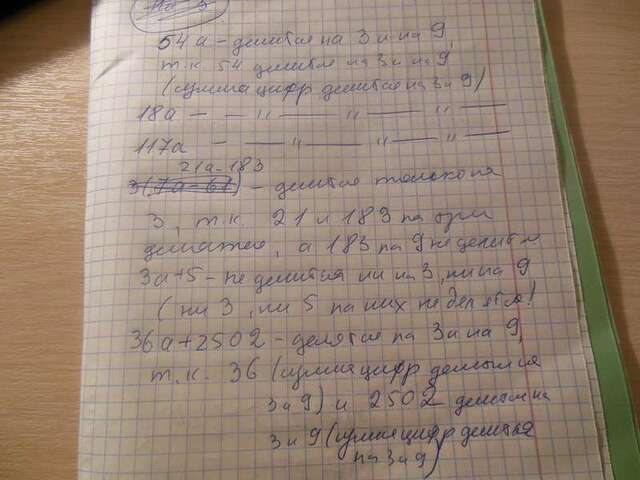 54а - делится на 3 и на 9,
т.к 54 делится на 3 и на 9
(сумма цифр делится на 3 и 9)
18а — — " — " — " —
117а — " — " — " —
21а-183
3(7а-61) - делится только на
3, т.к. 21 и 183 на три
делятся, а 183 на 9 не делится
3а+5 - не делится ни на 3, ни на 9
(ни 3, ни 5 на них не делятся!
36а+2502 - делятся на 3 и на 9,
т.к. 36 (сумма цифр делится
3 и 9) и 2502 делится на
3 и 9 (сумма цифр делится
на 3 и 9)